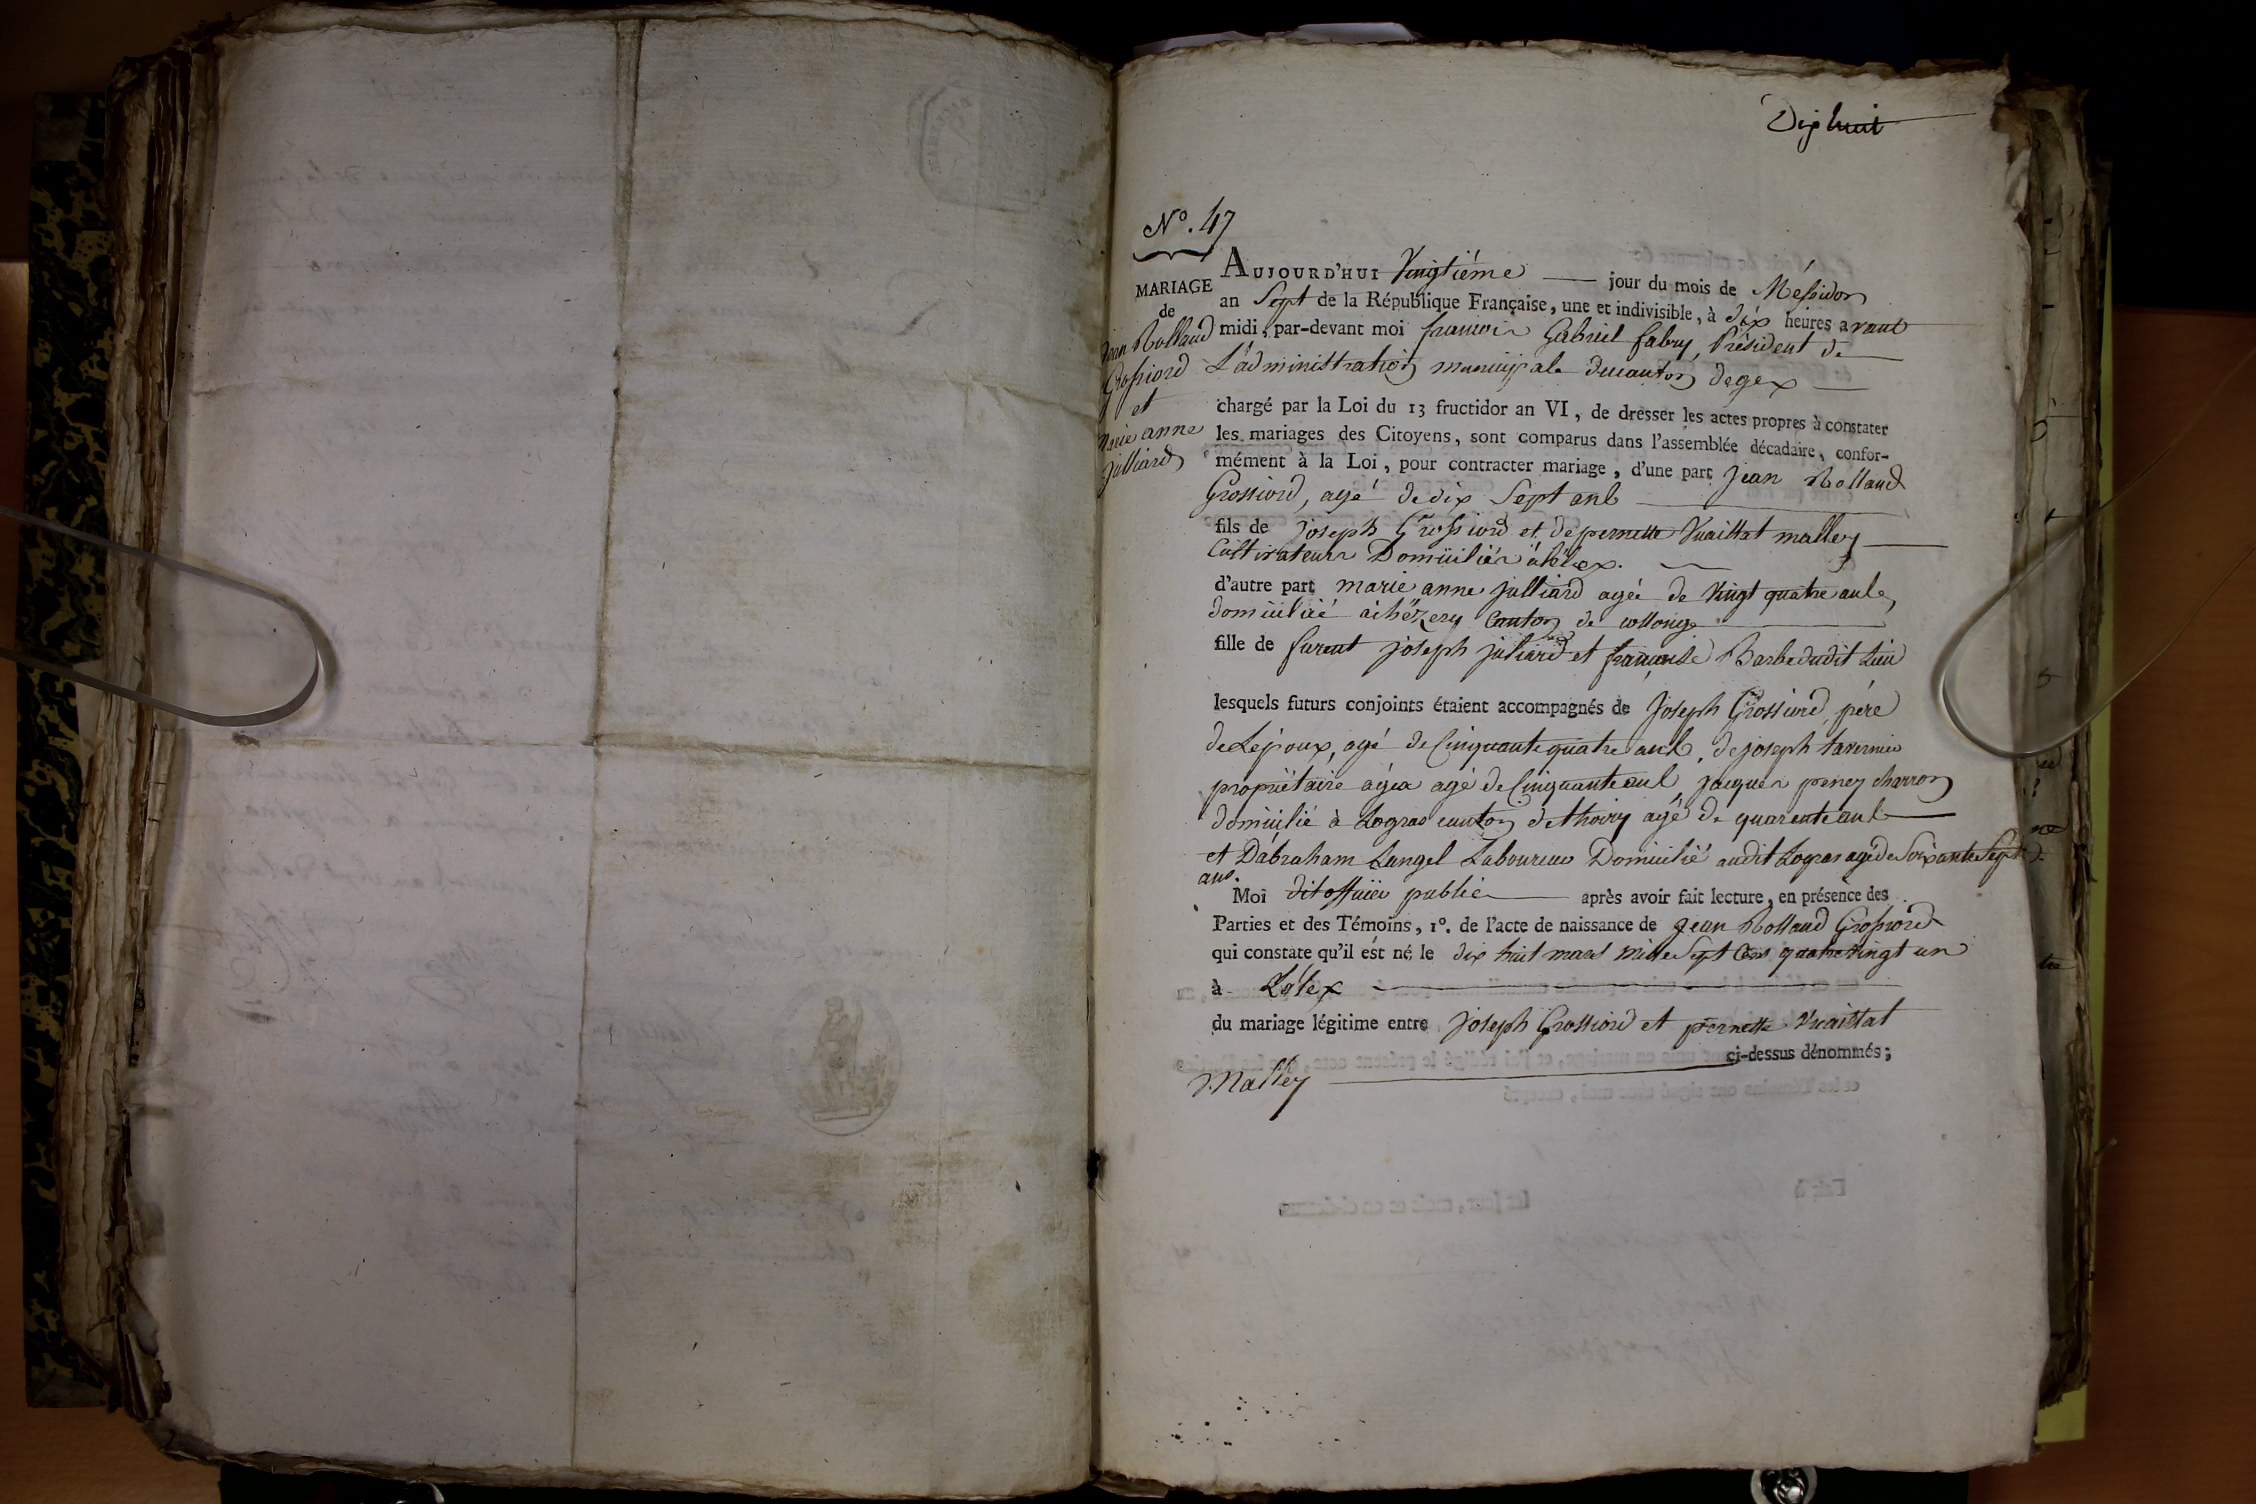 Dix huit
N°. 47
MARIAGE
de
Jean Rolland
Grossiord
et
Marie anne
Julliard
AUJOURD'HUI Vingtiéme jour du mois de Méssidor
an Sept de la République Française, une et indivisible, à dix heures avant
midi, par-devant moi francois Gabriel fabry, Président de
L'administration municipale ducanton degex
chargé par la Loi du 13 fructidor an VI, de dresser les actes propres à constater
les mariages des Citoyens, sont comparus dans l'assemblée décadaire, confor-
mément à la Loi, pour contracter mariage, d'une part Jean Rolland
Grossiord, agé de dix Sept ans
fils de joseph Grossiord et de pernette Vuaillat malley
Cultivateurs Domiciliés à lélex.
d'autre part marie anne julliard agée de Vingt quatre ans,
domiciliée à chézery Canton de collonge
fille de furent joseph juliard et francoise Barbe dudit Lieu
lesquels futurs conjoints étaient accompagnés de Joseph Grossiord, pére
de Lépoux, agé de Cinquante quatre ans, de joseph tavernier
propriétaire à gex agé de Cinquante ans jacques perney charron
domicilié à Logras canton de thoiry agé de quarente ans
et Dabraham Langel Laboureur Domicilié audit Logras agé de Soixante Sept
ans.
Moi dit officier public après avoir fait lecture, en présence des
Parties et des Témoins, 1°. de l'acte de naissance de Jean Rolland Grossiord
qui constate qu'il est né le dix huit mars mille Sept Cens quatrevingt un
à Lélex
du mariage légitime entre joseph Grossiord et pernette Vuaillat
ci-dessus dénommés;
Malley